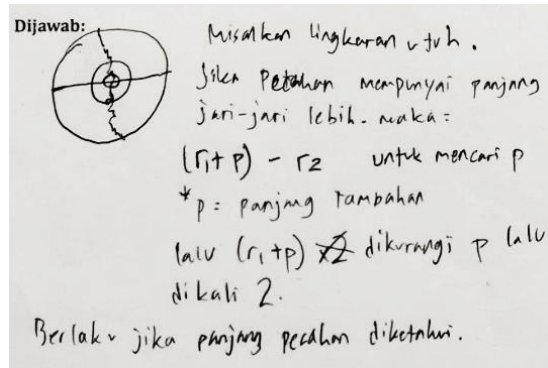 Dijawab:
Misalkan lingkaran utuh.
Jika Petahan mempunyai panjang
jari-jari lebih. maka =
(r1+p) - r2 untuk mencari p
* p = panjang tambahan
lalu (r1+p) dikurangi p lalu
dikali 2.
Berlaku jika panjang pecahan diketahui.